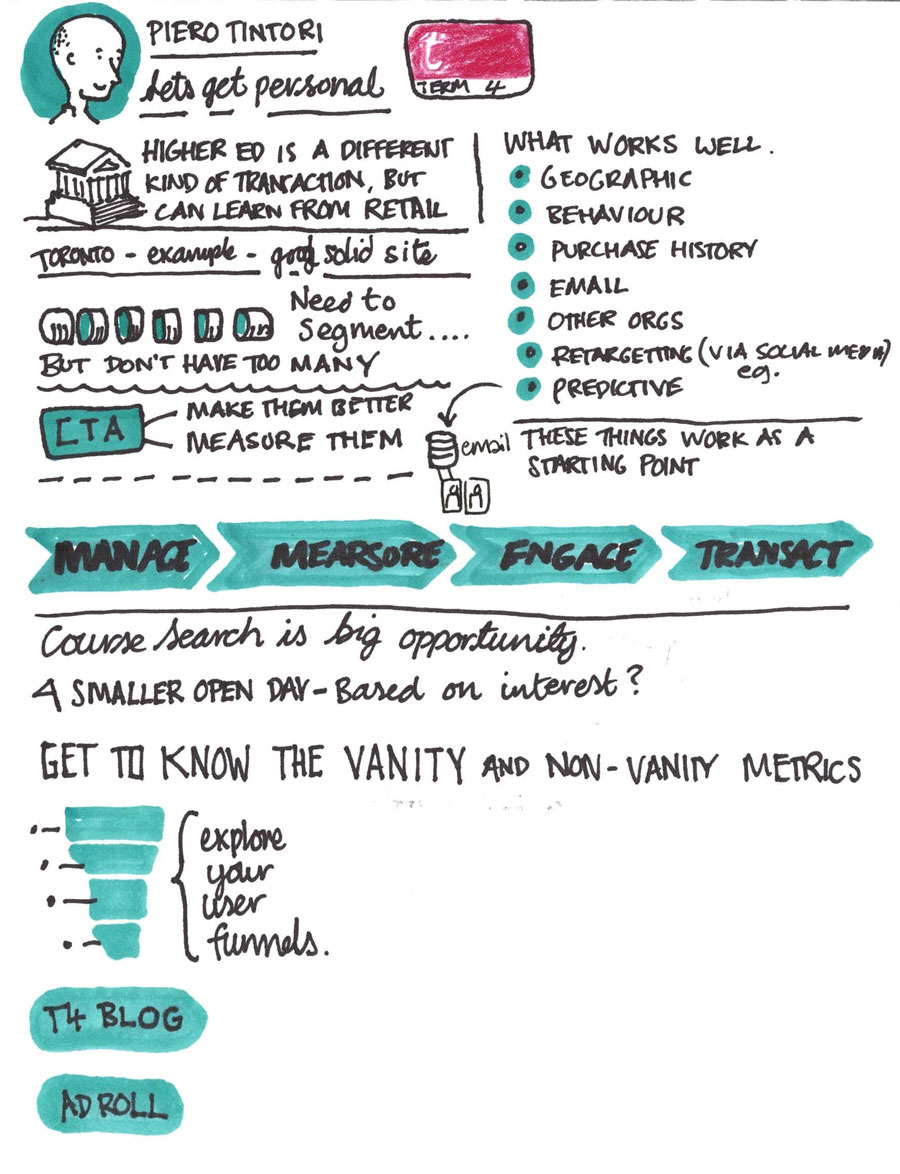 PIERO TINTORI
Lets get personal
t
TERM 4
HIGHER ED IS A DIFFERENT
KIND OF TRANSACTION, BUT
CAN LEARN FROM RETAIL
TORONTO - example - good solid site
Need to
Segment....
BUT DON'T HAVE TOO MANY
CTA
MAKE THEM BETTER
MEASURE THEM
WHAT WORKS WELL.
GEOGRAPHIC
BEHAVIOUR
PURCHASE HISTORY
EMAIL
OTHER ORGS
RETARGETTING (VIA SOCIAL MEDIA)
eg.
PREDICTIVE
email
THESE THINGS WORK AS A
STARTING POINT
MANAGE
MEARSURE
ENGAGE
TRANSACT
Course Search is big opportunity.
A SMALLER OPEN DAY - Based on interest?
GET TO KNOW THE VANITY AND NON-VANITY METRICS
explore
your
user
funnels.
T4 BLOG
AD ROLL